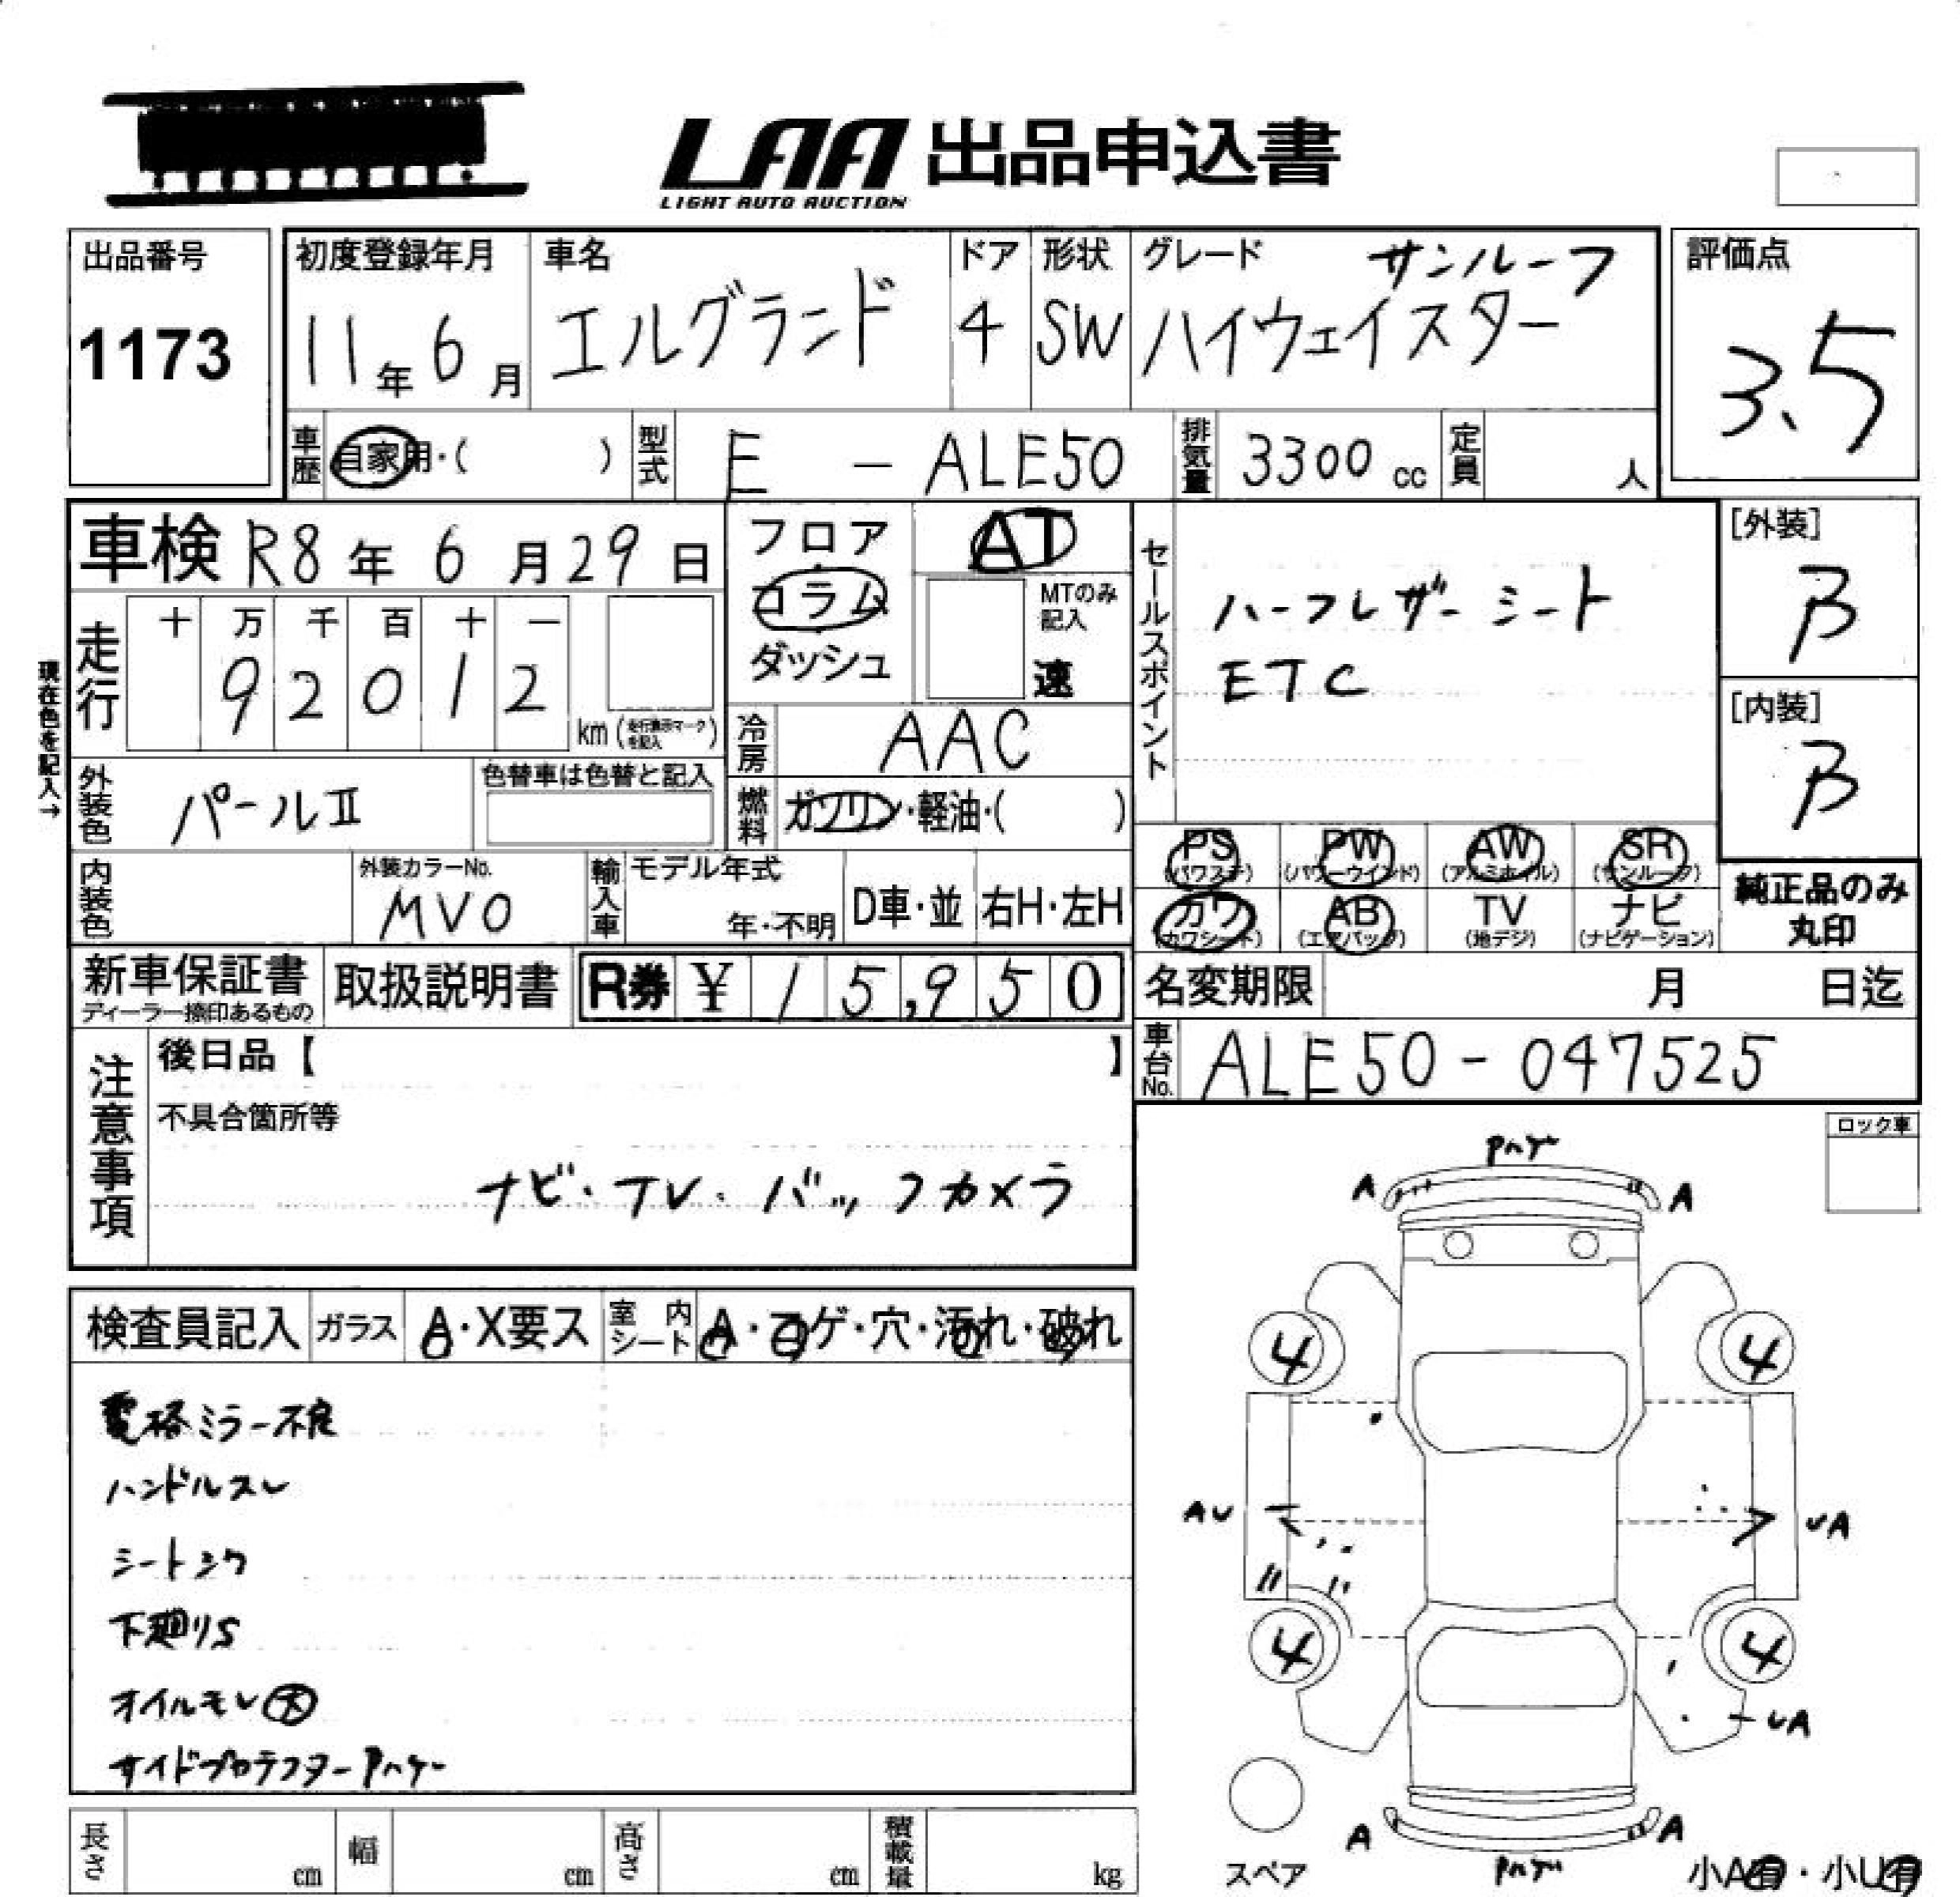 LAA 出品申込書
LIGHT AUTO AUCTION
出品番号
1173
初度登録年月
11年6月
車名
エルグランド
ドア
4
形状
SW
グレード
サンルーフ
ハイウェイスター
評価点
3.5
車歴 自家用・( )
型式 E - ALE50
排気量 3300 cc
定員 人
車検 R8年6月29日
現在色を記入→
走行
十 万 千 百 十 一
9 2 0 1 2
km
フロア
コラム
ダッシュ
AT
MTのみ記入
速
冷房 AAC
燃料 ガソリン・軽油・( )
セールスポイント
ハーフレザーシート
ETC
[外装]
B
[内装]
B
外装色 パールII
色替車は色替と記入
内装色
外装カラーNo.
MV0
輸入車
モデル年式
年・不明
D車・並
右H・左H
PS (パワステ)
PW (パワーウインド)
AW (アルミホイル)
SR (サンルーフ)
カワ (カワシート)
AB (エアバッグ)
TV (地デジ)
ナビ (ナビゲーション)
純正品のみ
丸印
新車保証書
ディーラー捺印あるもの
取扱説明書
R券 ¥ 15,950
名変期限 月 日迄
車台No. ALE50-047525
注意事項
後日品【 】
不具合箇所等
ナビ・TV・バックカメラ
ロック車
検査員記入
ガラス A・X要ス
室内シート A・コゲ・穴・汚れ・破れ
電格ミラー不良
ハンドルスレ
シートシワ
下廻りS
オイルモレ大
サイドプロテクターPハゲ
Pハゲ
A A
4 4
AU UA
4 4
UA
A A
Pハゲ
スペア
小A有・小U有
長さ cm
幅 cm
高さ cm
積載量 kg